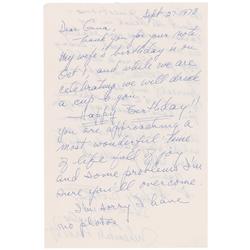 Sept 27, 1972
Dear
Thank you for your note
My wife's birthday is on
Oct 1 and while we are
celebrating we will drink
a cup to you.
Happy Birthday!!
you are approaching a
most wonderful time
of life full of joy
and some problems I'm
sure you'll overcome.
I'm sorry I have
no photos